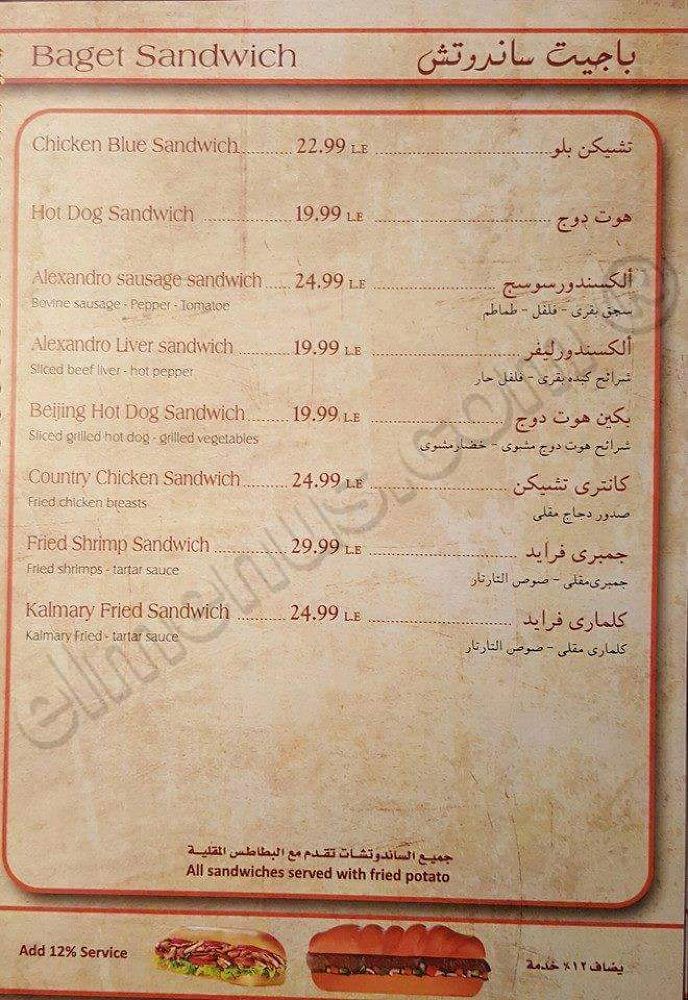 Baget Sandwich باجيت ساندروتش
Chicken Blue Sandwich 22.99 L.E تشيكن بلو
Hot Dog Sandwich 19.99 L.E هوت دوج
Alexandro sausage sandwich 24.99 L.E ألكسندورسوسج
Bovine sausage - Pepper - Tomatoe سجق بقرى - فلفل - طماطم
Alexandro Liver sandwich 19.99 L.E ألكسندورليفر
Sliced beef liver - hot pepper شرائح كبده بقرى - فلفل حار
Beijing Hot Dog Sandwich 19.99 L.E بكين هوت دوج
Sliced grilled hot dog - grilled vegetables شرائح هوت دوج مشوى - خضارمشوى
Country Chicken Sandwich 24.99 L.E كانترى تشيكن
Fried chicken breasts صدور دجاج مقلى
Fried Shrimp Sandwich 29.99 L.E جمبرى فرايد
Fried shrimps - tartar sauce جمبرى مقلى - صوص التارتار
Kalmary Fried Sandwich 24.99 L.E كلمارى فرايد
Kalmary Fried - tartar sauce كلمارى مقلى - صوص التارتار
elmenus.com ®
جميع الساندوتشات تقدم مع البطاطس المقلية
All sandwiches served with fried potato
Add 12% Service يضاف ١٢٪ خدمة